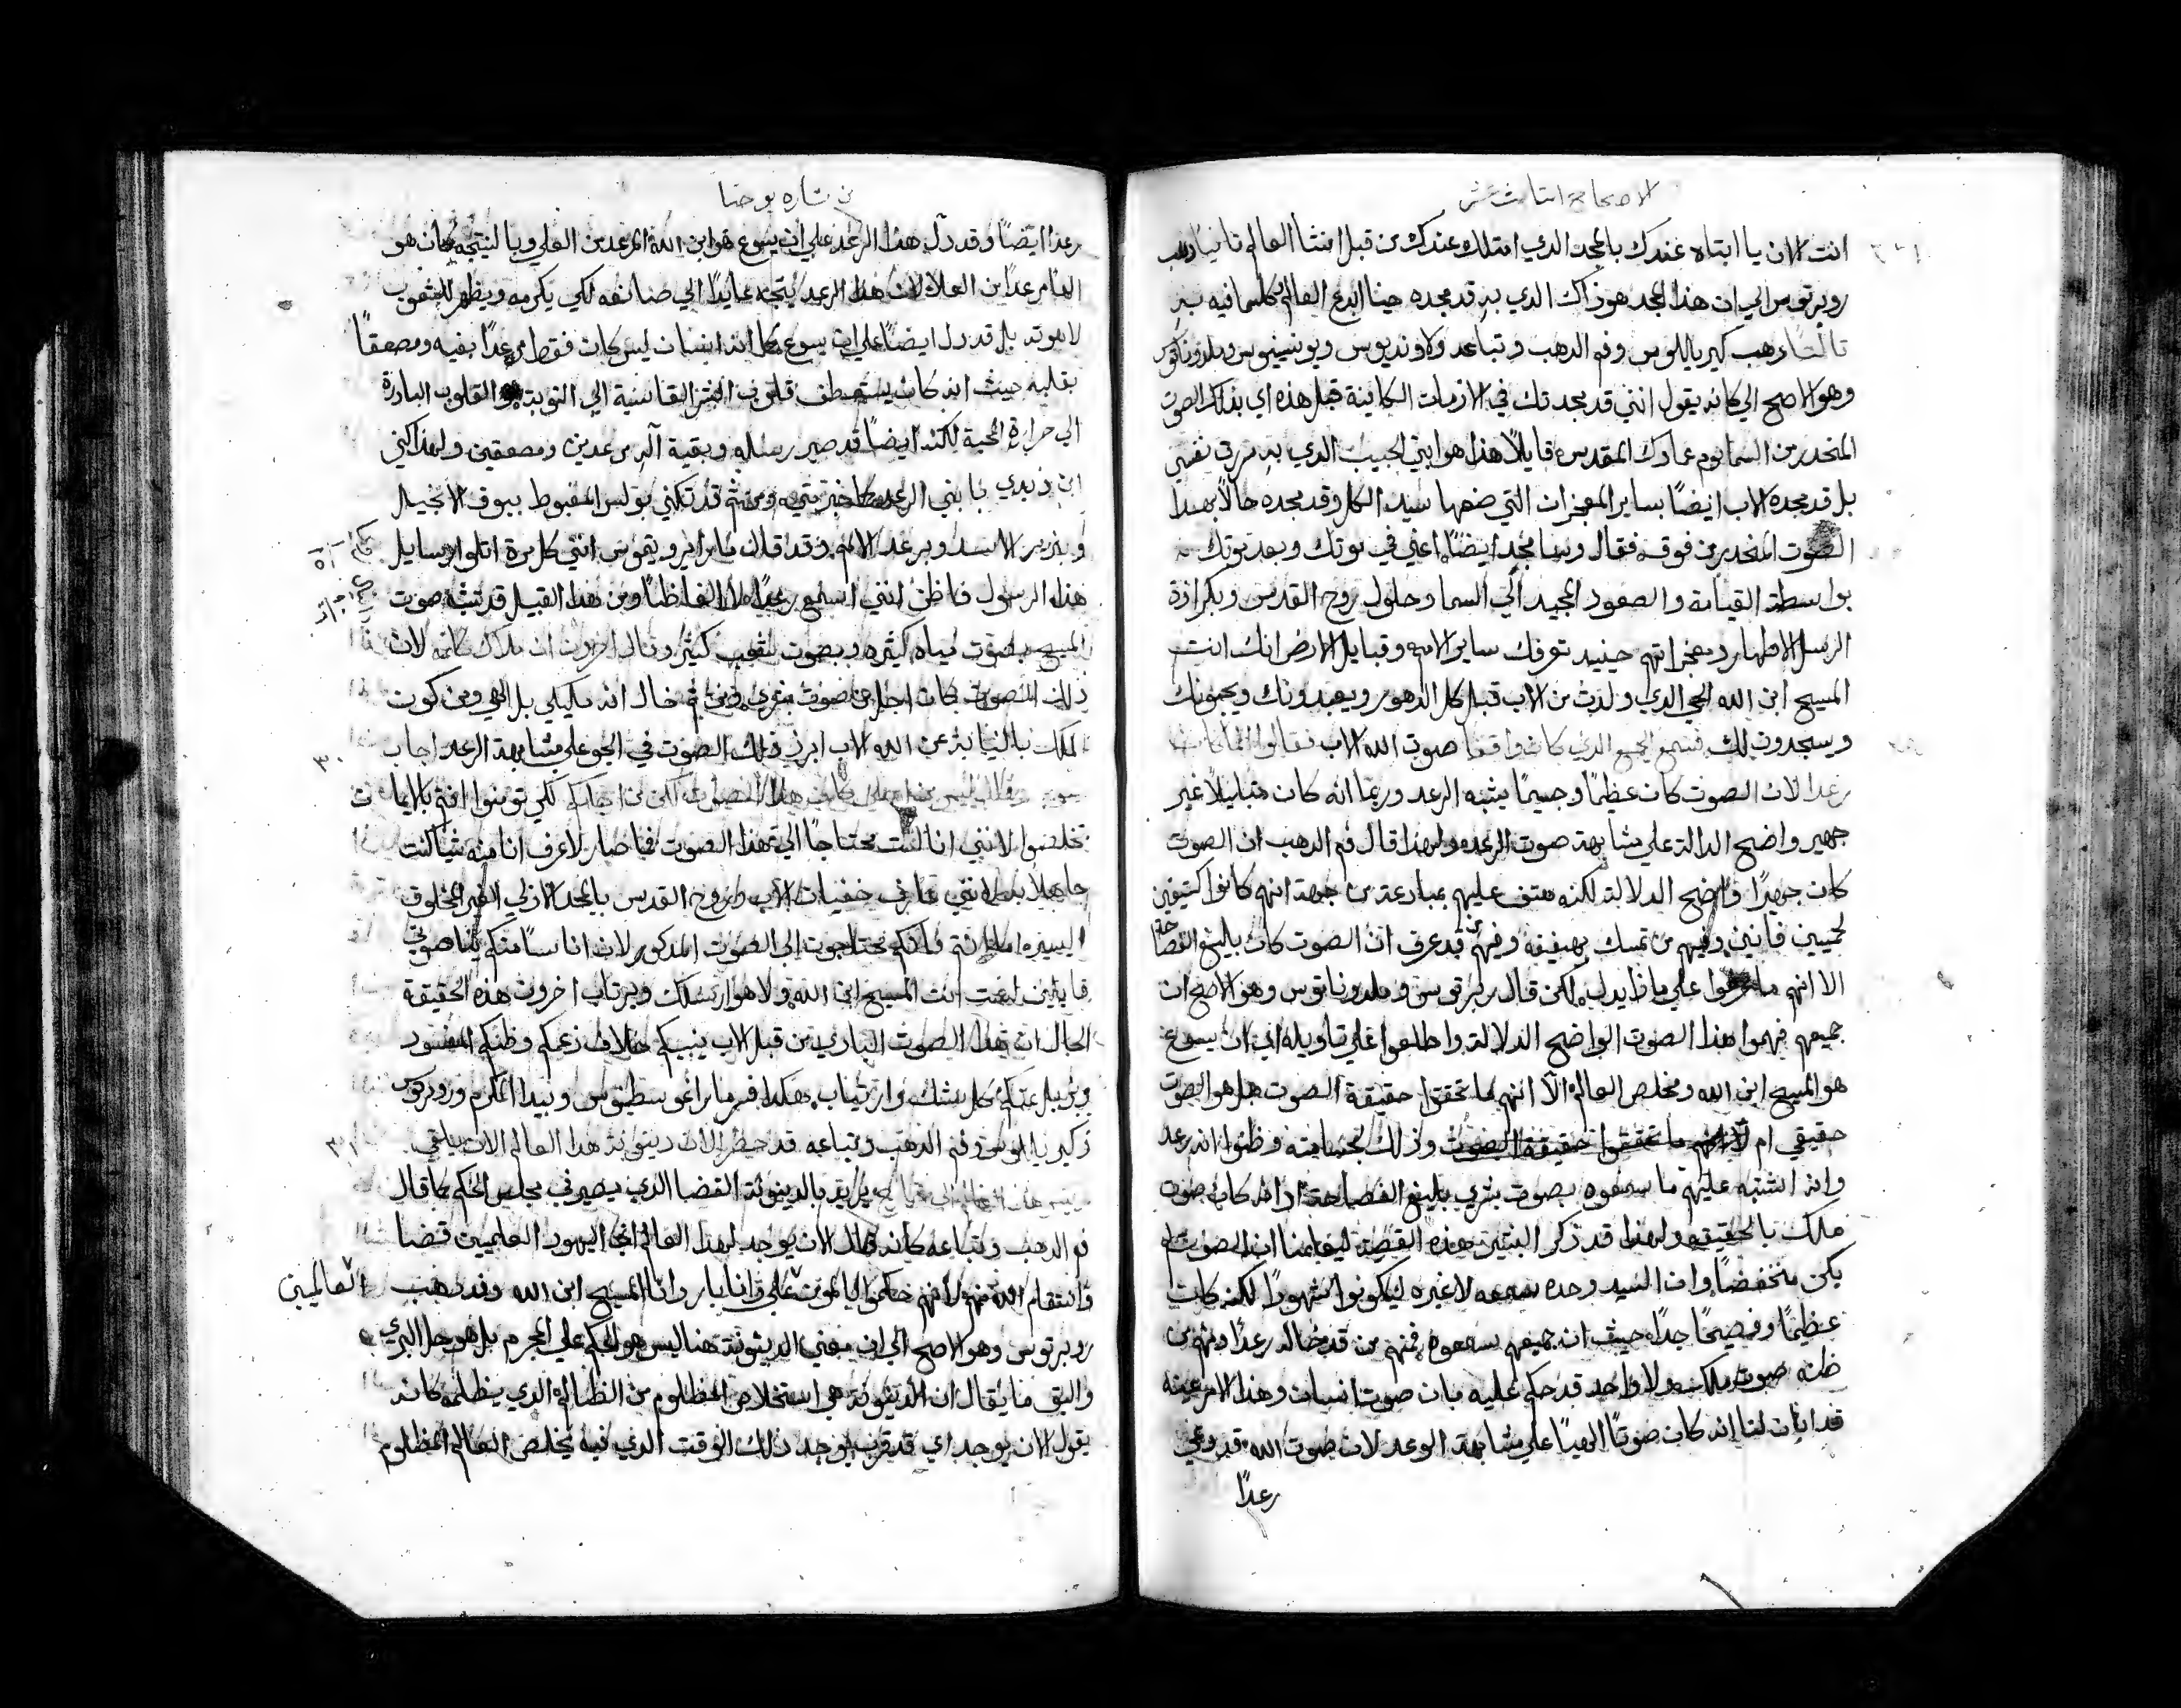 الاصحاح الثاني عشر
انت الان يا ابتاه عندك بالمجد الذي امتلك عندك من قبل انشا العالم ثانيا ذهب
روبرتوس الي ان هذا المجد هو ذاك الذي به قد مجده حينا ابدع العالم كلما فيه به
ثالثا ذهب كيرياللوس وفم الدهب وتباعد ولاونديوس ويونسينوس وملدوناتوس
وهو الاصح الي كانه يقول انني قد مجدتك في الازمات الكاينة قبل هذه اي بذلك الصوت
المنحدر من السما يوم عمادك المقدس قايلا هذا هو ابني الحبيب الذي به سرت نفسي
بل قد مجده الاب ايضًا بساير المعجزات التي ضعها سيد الكل وقد مجده حالاً بهذا
الصوت المنحدر من فوق فقال وسامجد ايضًا اعني في موتك وبعد موتك
بواسطة القيامة والصعود المجيد الي السما وحلول روح القدس وبكرازة
الرسل الاطهار ومعجزاتهم حينيد تعرفك ساير الامم وقبايل الارض انك انت
المسيح ابن الله الحي الذي ولدت من الاب قبل كل الدهور ويعبدونك ويحبونك
ويسجدون لك فسمع الجمع الذي كان واقفا صوت الله الاب فقالوا انما كان
رعدا لان الصوت كان عظيمًا وجسيمًا يشبه الرعد وربما انه كان متبليلاً غير
جهير واضح الدالة علي مشابهة صوت الرعد ولهذا قال فم الدهب ان الصوت
كان جهيرًا واضح الدلالة لكنه هتف عليهم بمبارعة من جهة انهم كانوا كثيفين
لحميين فانين وفيهم من تمسك بهفيفه وفيهم من قد عرف ان الصوت كان بليغ الفصاحة
الا انهم ما عرفوا علي ماذا يدل لكن قال روبرتوس وملدوناتوس وهو الاصح ان
جميعهم فهموا هذا الصوت الواضح الدلالة واطلعوا علي تاويله اي ان يسوع
هو المسيح ابن الله ومخلص العالم الا انهم ما تحققوا حقيقة الصوت هل هو الصوت
حقيقي ام لا انهم ما تحققوا حقيقة الصوت وذلك لجسامته وظنوا انه رعد
وانه اشتبه عليهم ما سمعوه بصوت بشري بليغ الفصاحة اذ انه كان صوت
ملك بالحقيقه ولهذا قد ذكر البشير هذه القصة ليفهمنا ان الصوت لم
يكن منخفضًا وان السيد وحده سمعه لا غيره ليكونوا شهودًا لكنه كان
عظيمًا وفصيحًا جدًا حيث ان جميعهم سمعوه فمنهم من قد خاله رعدًا ومنهم من
ظنه صوت ملك ولا واحد قد حكم عليه بان صوت انسان وهذا الامر عينه
قد ابان لنا انه كان صوتًا الهيًا علي مشابهة الرعد لان صوت الله قد دعي
رعدًا
من شارة يوحنا
رعدا ايضًا وقد دل هذا الرعد علي ان يسوع هو ابن الله المرعد من العلي وبالنتيجه كان هو
ايضا مرعدًا من العلا لان هذا الرعد يتجه عايدًا الي صانعه لكي يكرمه ويظهر للشعوب
لاهوته بل قد دل ايضًا علي ان يسوع بما انه انسان ليس كان فقط مرعدًا بفيه ومصعقًا
بقلبه حيث انه كان يستعطف قلوب البشر القاسية الي التوبة والقلوب الباردة
الي حرارة المحبة لكنه ايضًا قد صير رسله وبقية آله مرعدين ومصعقين ولهذا كني
ابن زبدي بابني الرعد كما خبر متي ومن ثم قد تكني بولس المغبوط ببوق الانجيل
وبزير الاسد وبرعد الامم وقد قال مار ايرونيموس انني كل مرة اتلوا رسايل
هذا الرسول فاظن انني اسمع رعيدًا لا الفاظًا ومن هذا القبيل قد تشبه صوت
المسيح بصوت مياه كثيره وبصوت شعب كثير وقال اخرون ان ملاك كلمه لان
ذلك الصوت كان اجل من صوت بشري ومن ثم خال انه مليكي بل الهي ومن كون
الملك بالنيابة عن الله الاب ابرز ذلك الصوت في الجو علي مشابهة الرعد اجاب ٣٠
يسوع وقال ليس من اجلي كان هذا الصوت لكن من اجلكم لكي تومنوا انتم بالايمان
تخلصوا لانني انا لست محتاجًا الي هذا الصوت فما صار لاعرف انا منه شيا كنت
جاهلا به لانني عارف خفيات الاب وروح القدس بالمجد الازلي الغير المخلوق
اليسيره اما انتم فانكم محتاجون الي الصوت المذكور لان اناسًا منكم يناصبوني
قايلين لست انت المسيح ابن الله ولا هو ارسلك ويرتاب اخرون هذه الحقيقة
الحال ان هذا الصوت البارز من قبل الاب ينبيكم خلاف زعمكم وظنكم المفسود
ويزيل عنكم كل شك وارتياب هكذا فسر مار اغوسطينوس وبيدا المكرم وروبرتوس
وكيرياللوس وفم الدهب وتباعه قد حضر الان دينونة هذا العالم الان يلقي ٣١
يريد بالدينونة القضا الذي يصير في مجلس الحكم كما قال
فم الدهب وتباعه كانه قال الان يوجد لهذا العالم اي اليهود العلميين قضا
وانتقام الله منهم لانهم حكموا بالموت علي وانا بار وانا المسيح ابن الله وقد ذهب العالميين
روبرتوس وهو الاصح الي ان معني الدينونة هنا ليس هو الحكم علي المجرم بل هو حل البري
واليق ما يقال ان الدينونة هي استخلاص المظلوم من الظالم الذي يظلمه كانه
يقول الان يوجد اي قد قرب يوجد ذلك الوقت الذي فيه يخلص العالم المظلوم